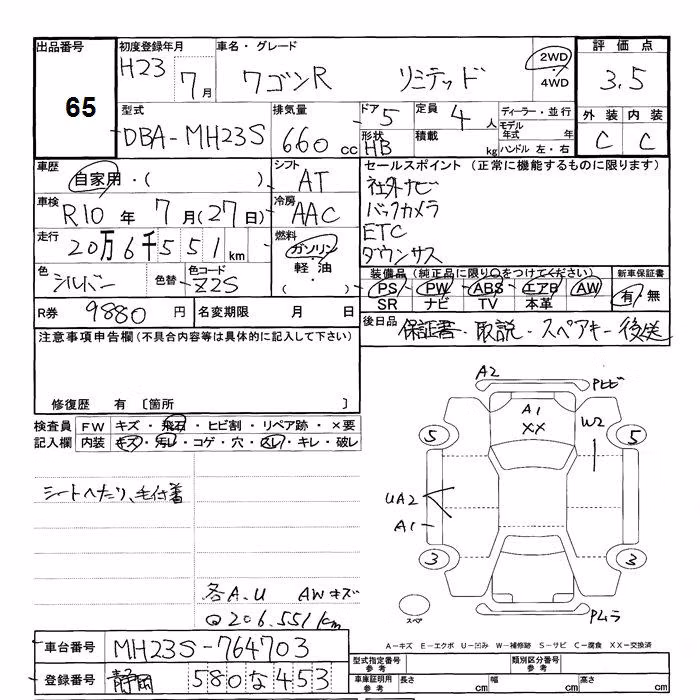 出品番号
65
初度登録年月
H23 7月
車名・グレード
ワゴンR リミテッド
2WD
4WD
評価点
3.5
外装 内装
C C
型式
DBA-MH23S
排気量
660 cc
ドア 5
形状 HB
定員 4 人
積載 kg
ディーラー・並行
モデル年式 年
ハンドル 左・右
車歴
自家用・( )
シフト
AT
車検
R10 年 7 月(27日)
冷房
AAC
走行
20万6千551km
燃料
ガソリン
軽油
・( )
色
シルバー
色替
色コード
Z2S
セールスポイント(正常に機能するものに限ります)
社外ナビ
バックカメラ
ETC
ダウンサス
装備品(純正品に限り○をつけてください)
PS・PW・ABS・エアB・AW
SR ナビ TV 本革
新車保証書
有・無
R券 9880 円
名変期限 月 日
後日品
保証書・取説・スペアキー後送
注意事項申告欄(不具合内容等は具体的に記入して下さい)
修復歴 有〔箇所 〕
検査員記入欄
FW キズ・飛石・ヒビ割・リペア跡・×要
内装 キズ・汚レ・コゲ・穴・スレ・キレ・破レ
シートへたり、毛付着
各A.U AWキズ
@206.551km
A2
Pヒビ
A1
XX
W2
5
5
UA2
A1
3
3
スペ
Pムラ
A-キズ E-エクボ U-凹み W-補修跡 S-サビ C-腐食 XX-交換済
車台番号
MH23S-764703
登録番号
静岡 580 な 453
型式指定番号 参考
類別区分番号 参考
車庫証明用 参考
長さ cm
幅 cm
高さ cm